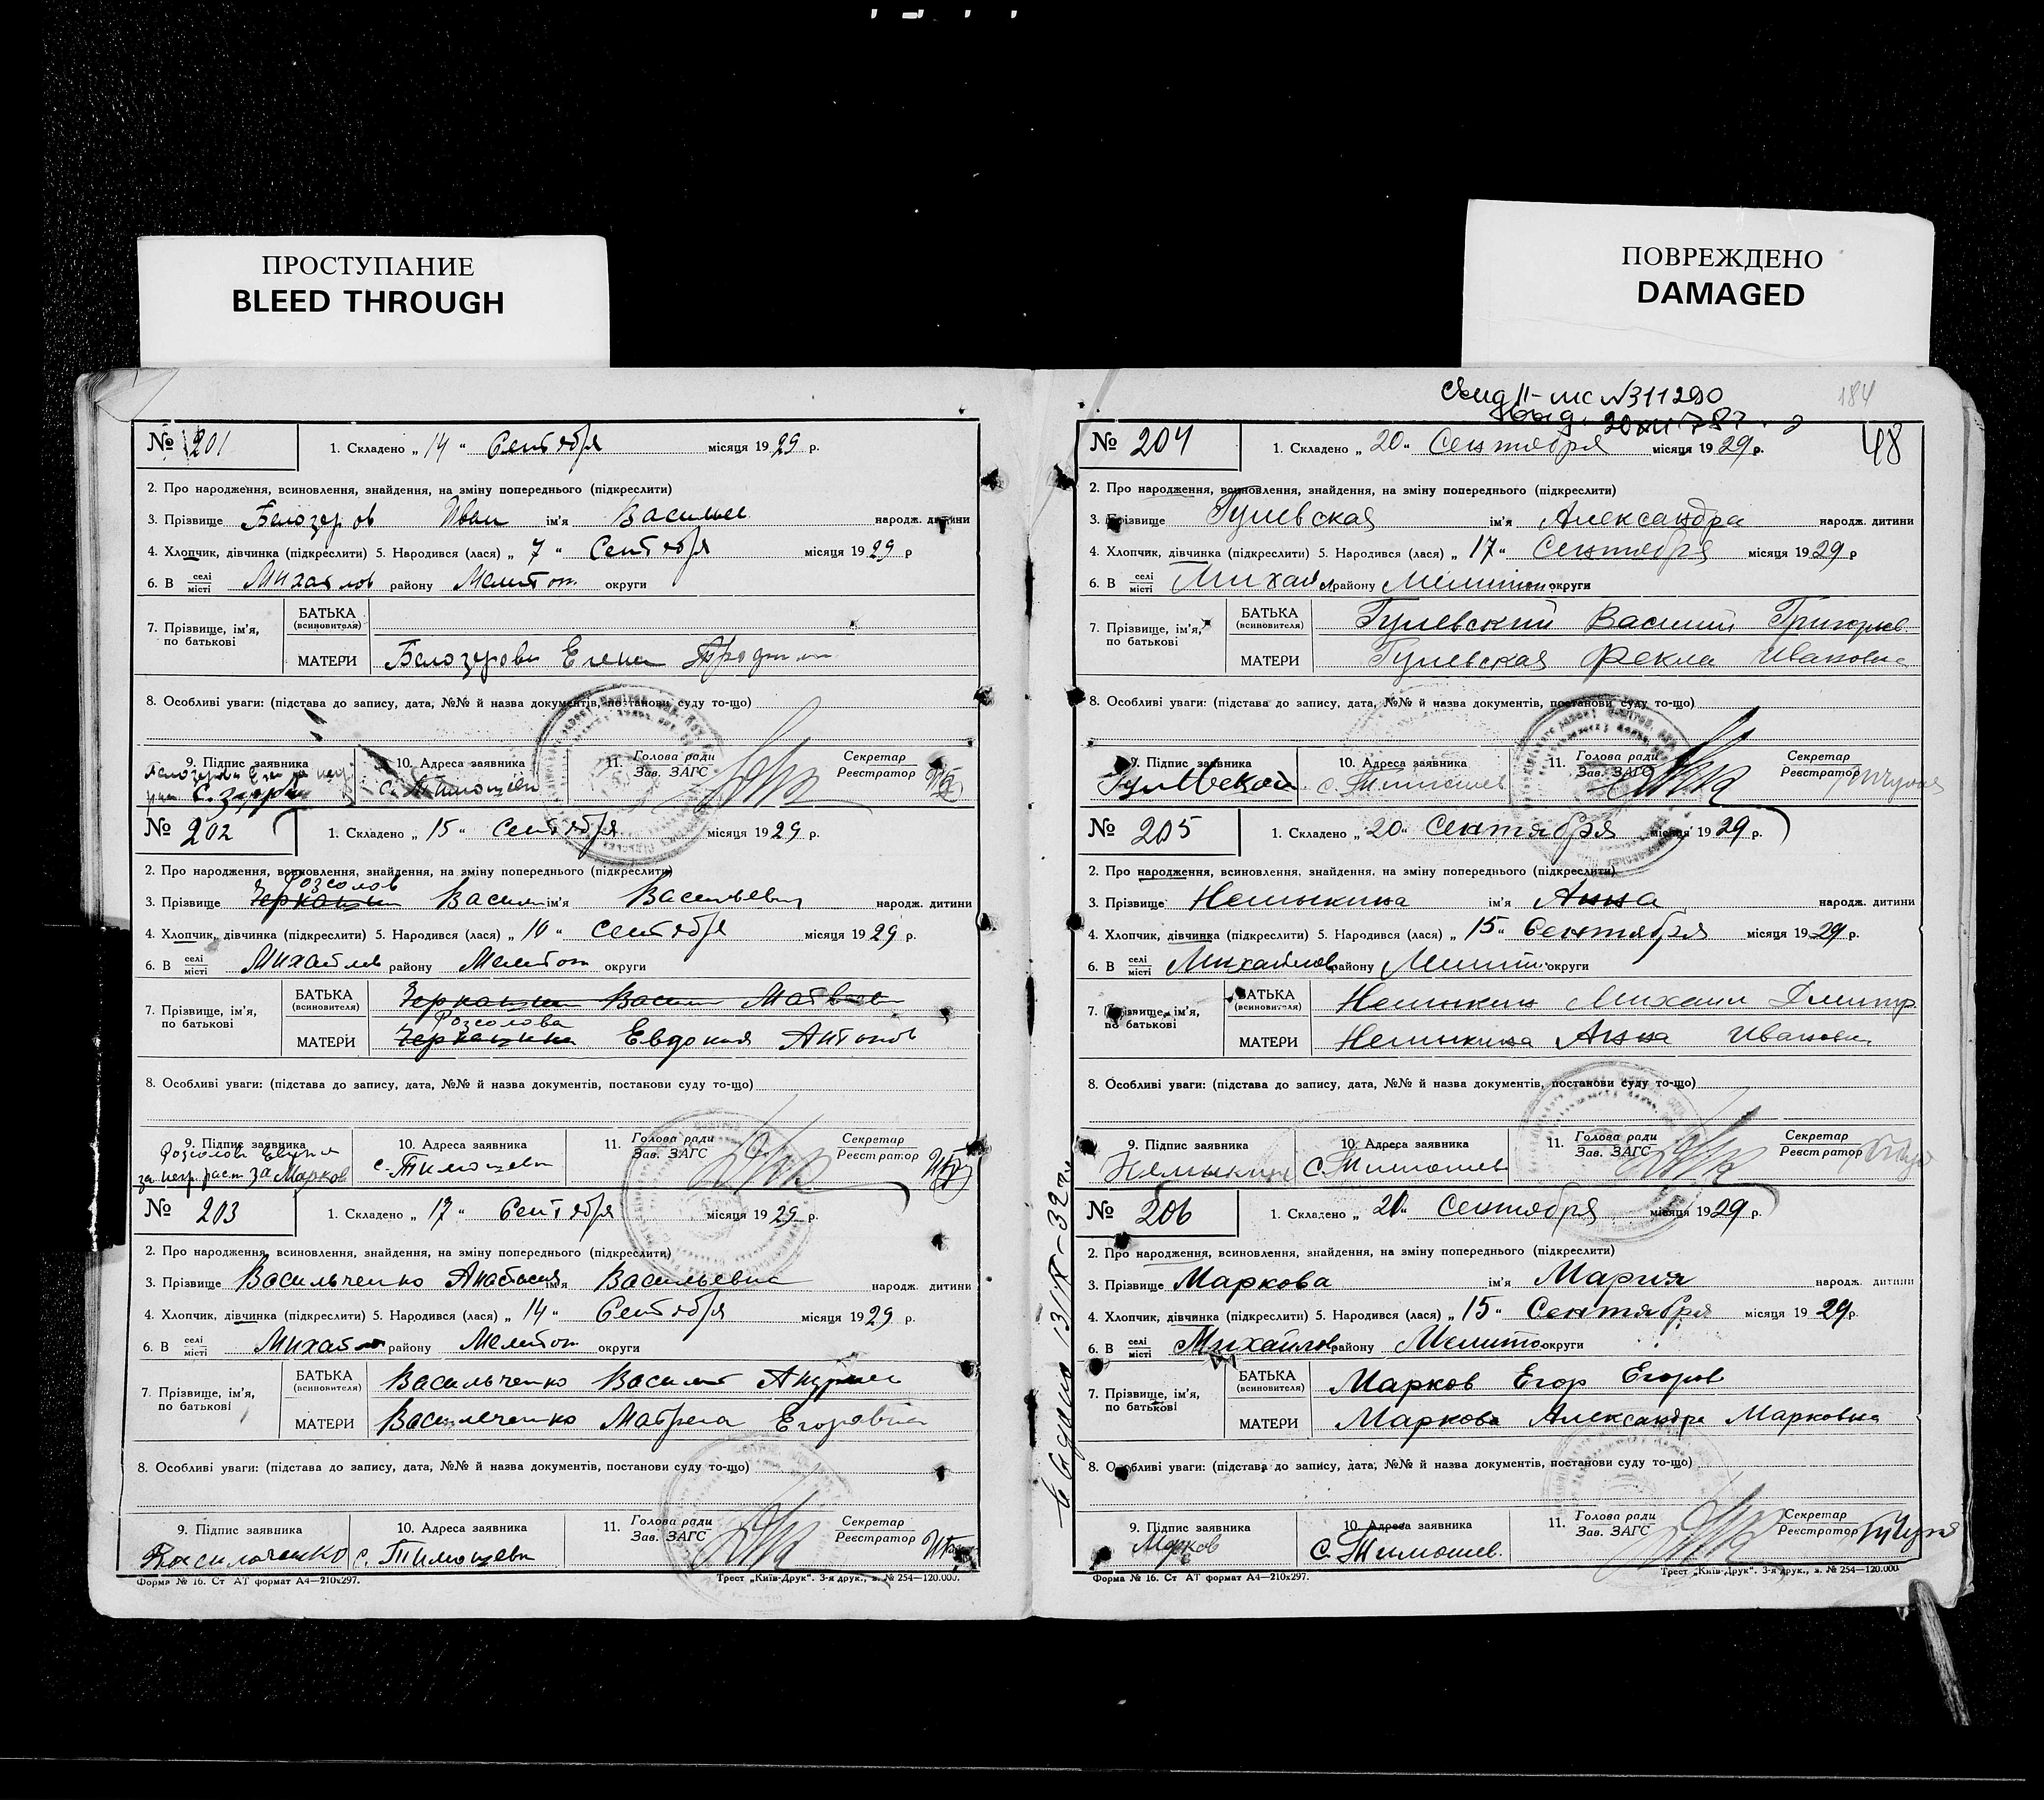 ПРОСТУПАНИЕ
BLEED THROUGH
ПОВРЕЖДЕНО
DAMAGED
№ 201 1. Складено „ 14 “ Сентября місяця 1929 р.
2. Про народження, всиновлення, знайдення, на зміну попереднього (підкреслити)
3. Прізвище Белозеров Иван ім'я Василье народж. дитини
4. Хлопчик, дівчинка (підкреслити) 5. Народився (лася) „ 7 “ Сентября місяця 1929 р
6. В селі місті Михайлов району Мелитоп округи
7. Прізвище, ім'я, по батькові
БАТЬКА (всиновителя)
МАТЕРИ Белозерова Елена
8. Особливі уваги: (підстава до запису, дата, №№ й назва документів, постанови суду то-що)
9. Підпис заявника 10. Адреса заявника 11. Голова ради Зав. ЗАГС Секретар Реєстратор
с. Тимошевк
№ 202 1. Складено „ 15 “ Сентября місяця 1929 р.
2. Про народження, всиновлення, знайдення, на зміну попереднього (підкреслити)
Розсолов
3. Прізвище Черкашин Васили ім'я Васильевич народж. дитини
4. Хлопчик, дівчинка (підкреслити) 5. Народився (лася) „ 10 “ Сентября місяця 1929 р.
6. В селі місті Михайлов району Мелитоп округи
7. Прізвище, ім'я, по батькові
БАТЬКА (всиновителя) Черкашин Васили Матвеев
Розсолова
МАТЕРИ Черкашина Евдокия Антонов
8. Особливі уваги: (підстава до запису, дата, №№ й назва документів, постанови суду то-що)
9. Підпис заявника 10. Адреса заявника 11. Голова ради Зав. ЗАГС Секретар Реєстратор
за негр раст за Марков с. Тимошевк
№ 203 1. Складено „ 17 “ Сентября місяця 1929 р.
2. Про народження, всиновлення, знайдення, на зміну попереднього (підкреслити)
3. Прізвище Васильченко Анастасия ім'я Васильевна народж. дитини
4. Хлопчик, дівчинка (підкреслити) 5. Народився (лася) „ 14 “ Сентября місяця 1929 р.
6. В селі місті Михайлов району Мелитоп округи
7. Прізвище, ім'я, по батькові
БАТЬКА (всиновителя) Васильченко Василий
МАТЕРИ Васильченко Матрена Егоровна
8. Особливі уваги: (підстава до запису, дата, №№ й назва документів, постанови суду то-що)
9. Підпис заявника 10. Адреса заявника 11. Голова ради Зав. ЗАГС Секретар Реєстратор
Васильченко с. Тимошевк
Форма № 16. Ст АТ формат А4—210х297. Трест „Київ-Друк“. 3-я друк., з. № 254—120.000.
184
№311290
48
№ 204 1. Складено „ 20 “ Сентября місяця 1929 р.
2. Про народження, всиновлення, знайдення, на зміну попереднього (підкреслити)
3. Прізвище Гулевская ім'я Александра народж. дитини
4. Хлопчик, дівчинка (підкреслити) 5. Народився (лася) „ 17 “ Сентября місяця 1929 р
6. В селі місті Михайл району Мелитоп округи
7. Прізвище, ім'я, по батькові
БАТЬКА (всиновителя) Гулевский Василий Григорьев.
МАТЕРИ Гулевская Фекла Ивановна
8. Особливі уваги: (підстава до запису, дата, №№ й назва документів, постанови суду то-що)
9. Підпис заявника 10. Адреса заявника 11. Голова ради Зав. ЗАГС Секретар Реєстратор
Гулевской с. Тимошев
№ 205 1. Складено „ 20 “ Сентября місяця 1929 р.
2. Про народження, всиновлення, знайдення, на зміну попереднього (підкреслити)
3. Прізвище Немыкина ім'я Анна народж. дитини
4. Хлопчик, дівчинка (підкреслити) 5. Народився (лася) „ 15 “ Сентября місяця 1929 р.
6. В селі місті Михайлов району Мелит. округи
7. Прізвище, ім'я, по батькові
БАТЬКА (всиновителя) Немыкин Михаил Дмитр.
МАТЕРИ Немыкина Анна Ивановна
8. Особливі уваги: (підстава до запису, дата, №№ й назва документів, постанови суду то-що)
9. Підпис заявника 10. Адреса заявника 11. Голова ради Зав. ЗАГС Секретар Реєстратор
Немыкин с. Тимошев
№ 206 1. Складено „ 21 “ Сентября місяця 1929 р.
2. Про народження, всиновлення, знайдення, на зміну попереднього (підкреслити)
3. Прізвище Маркова ім'я Мария народж. дитини
4. Хлопчик, дівчинка (підкреслити) 5. Народився (лася) „ 15 “ Сентября місяця 1929 р.
6. В селі місті Михайлов району Мелито округи
7. Прізвище, ім'я, по батькові
БАТЬКА (всиновителя) Марков Егор Егоров
МАТЕРИ Маркова Александра Марковна
8. Особливі уваги: (підстава до запису, дата, №№ й назва документів, постанови суду то-що)
9. Підпис заявника 10. Адреса заявника 11. Голова ради Зав. ЗАГС Секретар Реєстратор
Марков с. Тимошев.
Форма № 16. Ст АТ формат А4—210х297. Трест „Київ-Друк“. 3-я друк., з. № 254—120.000.